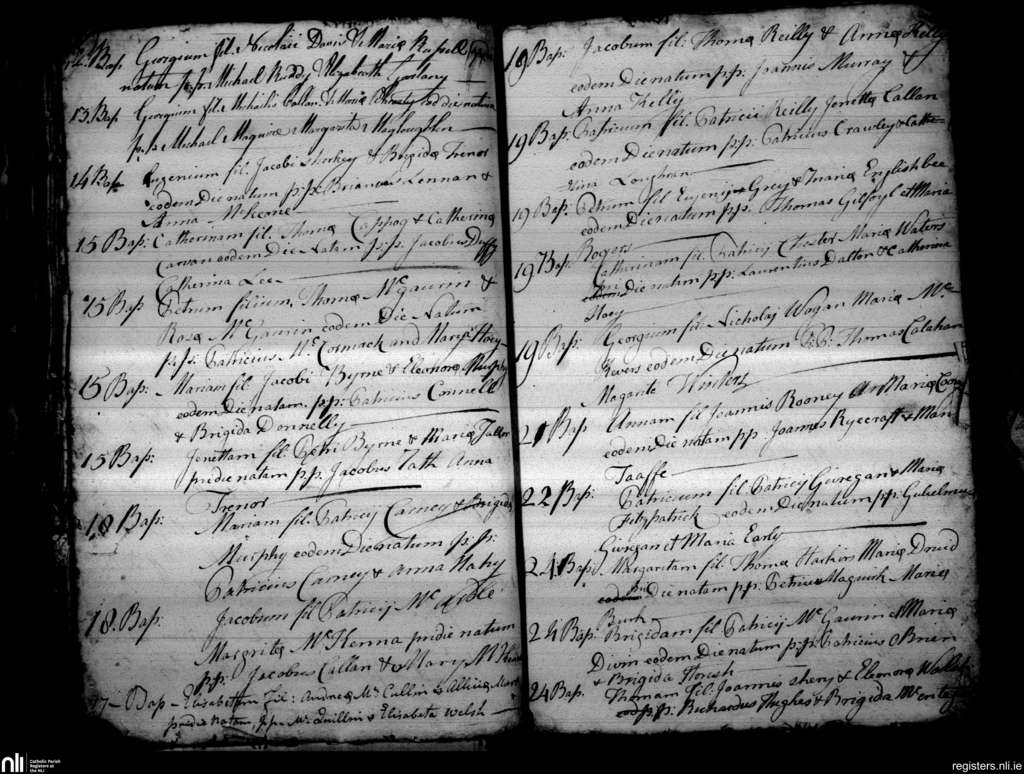 12 Bap: Georgium fil: Nicolai Davis & Mariæ Russell
natum p:p: Michael Reddy & Elizabeth Gartlany
13 Bap Georgium fil: Michaelis Callan & Mariæ eod: die natum
p:p: Michael Maguire & Margarita Magloughlin
14 Bap Eugenium fil. Jacobi Shorkey & Brigidæ Trenor
eodem Die natum p:p: Brianus Lennan &
Anna McKeone
15 Bap: Catherinam fil: Thomæ Cappog & Catherinæ
Carvan eodem Die Natam p:p: Jacobus Duffy
Catherina Lee
15 Bap: Petrum filium Thomæ McGaurin &
Rosæ McGaurin eodem Die Natum
p:p: Patricius McCormack and Mary Hoey
15 Bap: Mariam fil Jacobi Byrne & Eleonoræ Murphy
eodem Die natam p:p: Patricius Connell
& Brigida Donnelly
15 Bap: Jenettam fil: Petri Byrne & Mariæ
pridie natam p:p: Jacobus Tath Anna
Trenor
18 Bap: Mariam fil: Patricij Carney & Brigidæ
Murphy eodem Die natum p:p:
Patricius Carney & Anna
18. Bap: Jacobum fil Patricij Mc
Margritæ McKenna pridie natum
p:p: Jacobus Callan & Mary McKenna
17 - Bap - Elisabetam Fil: Andreæ McCullin & Alliciæ
pridie natam p:p - McQuillin & Elisabeta Welsh
19 Bap: Jacobum fil: Thomæ Reilly & Annæ Kelly
eodem Die natum p:p: Joannis Murray &
Anna Kelly
19 Bap: Patricium fil: Patricii Reilly Jenettæ Callan
eodem Die natum p:p: Patricius Crawley & Cathe
rina Loughran
19 Bap: Petrum fil Eugenij Grey & Mariæ English bee
eodem Die natum p:p: Thomas Gilfoyl et Maria
Rogers
19 Bap: Catherinam fil: Patricij Chester Mariæ Waters
pri Die natam p:p: Laurentius Dalton & Catherina
Hoey
19 Bap: Georgium fil: Nicholaj Wogan Mariæ Mc
Kevers eodem Die natum P:P: Thomas Calahan
Magarite Winters
21 Bap Annam fil Joannis Rooney Mariæ
eodem Die natam p:p: Joannes Ryecraft & Maria
Taaffe
22 Bap: Patricium fil: Patricij Guiregan & Mariæ
Fitzpatrick eodem Die natum p:p: Guhelmus
Guiregan et Maria Early
24 Bap: Margaritam fil: Thomæ Harkins Mariæ Druid
pri Die natam p:p: Petrus Maguirk Mariæ
Burk
24 Bap: Brigidam fil Patricij McGaurin & Mariæ
Divin eodem Die natum p:p: Patricius OBrien
& Brigida
24 Bap: Thomam fil: Joannis Shery & Eleonoræ
p:p: Richardus Hughes & Brigida McEntegart
nli
Catholic Parish
Registers at
the NLI
registers.nli.ie